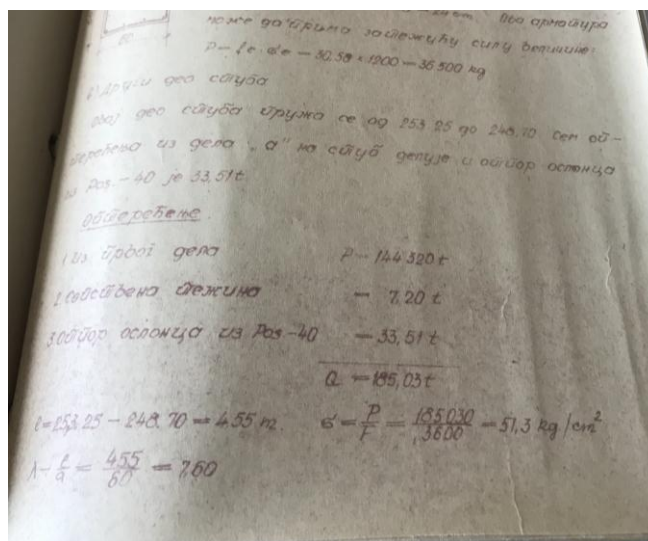 Ова арматура
може да прима затежућу силу величине:
60
P = fe · σe = 30.58 × 1200 = 36500 kg
б) Други део стуба
Овај део стуба пружа се од 253.25 до 248.70 сем оп-
терећења из дела „а" на стуб делује и отпор ослонца
из Pos. - 40 је 33,51 t.
Оптерећење
1. из првог дела P = 144.320 t
2. сопствена тежина = 7,20 t
3. отпор ослонца из Pos-40 = 33,51 t
Q = 185,03 t
l = 253,25 - 248.70 = 4.55 m. σ = P/F = 185030/3600 = 51,3 kg/cm²
λ = l/a = 455/60 = 7,60